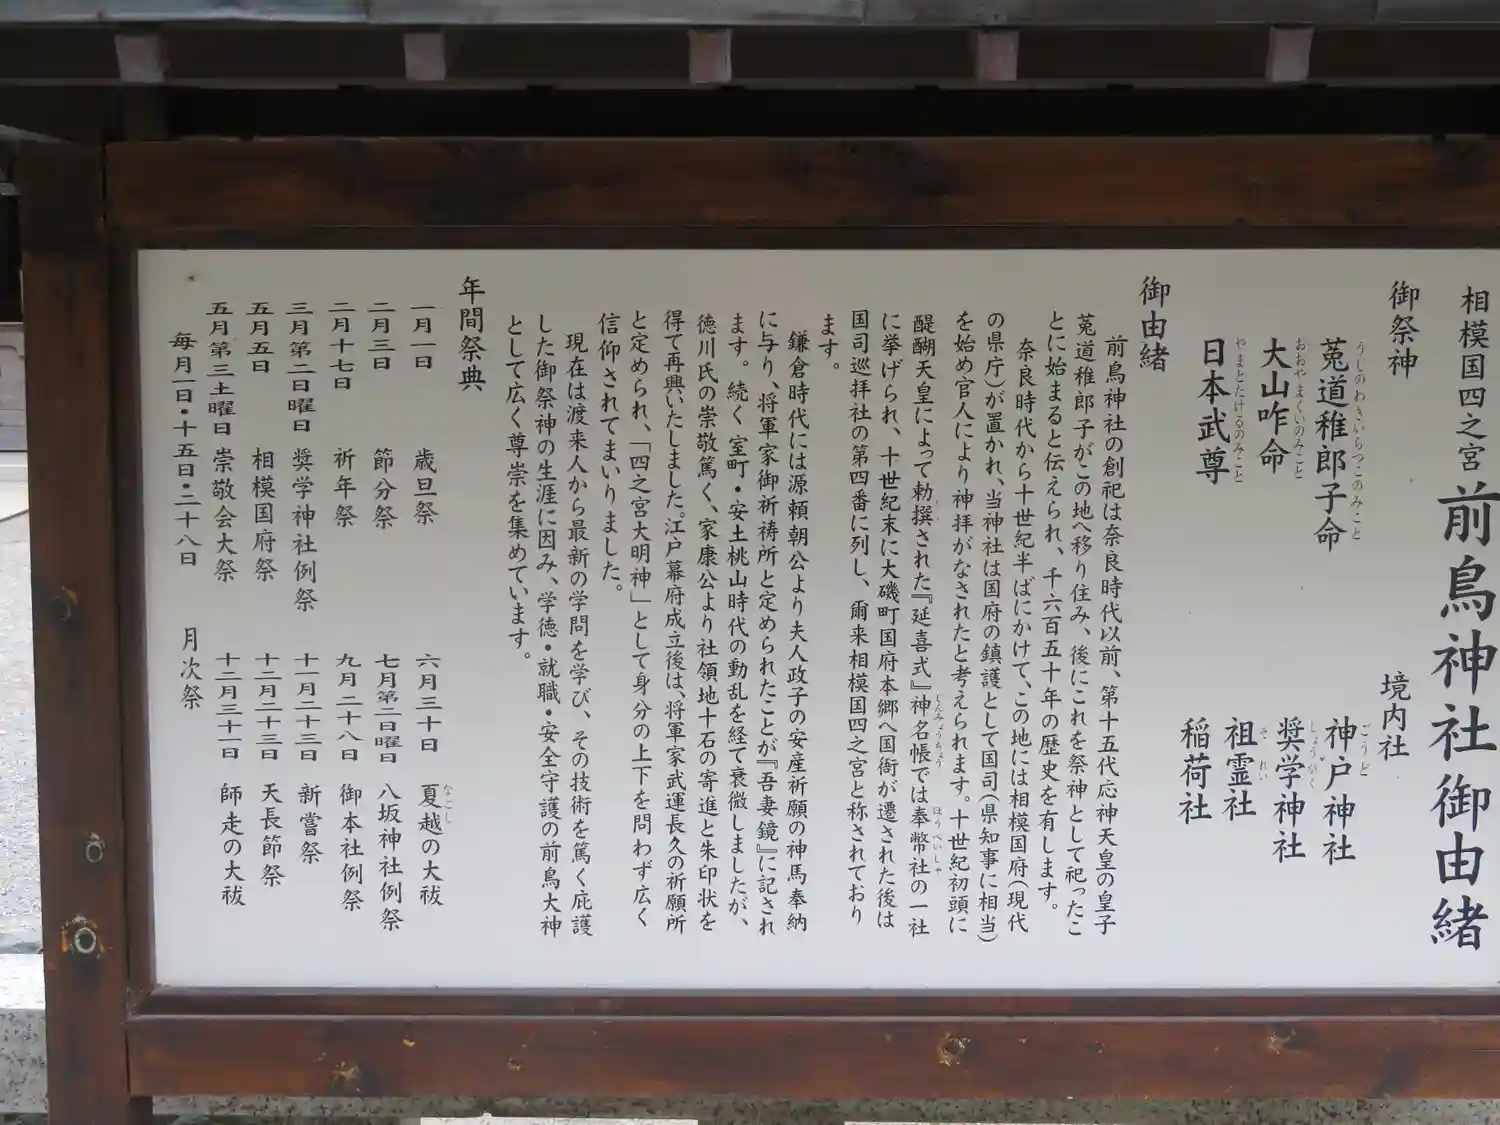 相模国四之宮 前鳥神社御由緒
御祭神
菟道稚郎子命
うじのわきいらつこのみこと
大山咋命
おおやまくいのみこと
日本武尊
やまとたけるのみこと
境内社
神戸神社
ごうど
奨学神社
しょうがく
祖霊社
それい
稲荷社
御由緒
前鳥神社の創祀は奈良時代以前、第十五代応神天皇の皇子
菟道稚郎子がこの地へ移り住み、後にこれを祭神として祀ったこ
とに始まると伝えられ、千六百五十年の歴史を有します。
奈良時代から十世紀半ばにかけて、この地には相模国府(現代
の県庁)が置かれ、当神社は国府の鎮護として国司(県知事に相当)
を始め官人により神拝がなされたと考えられます。十世紀初頭に
醍醐天皇によって勅撰された『延喜式』神名帳では奉幣社の一社
じんみょうちょう
ほうへいしゃ
に挙げられ、十世紀末に大磯町国府本郷へ国衙が遷された後は
国司巡拝社の第四番に列し、爾来相模国四之宮と称されており
ます。
鎌倉時代には源頼朝公より夫人政子の安産祈願の神馬奉納
に与り、将軍家御祈祷所と定められたことが『吾妻鏡』に記され
ます。続く室町・安土桃山時代の動乱を経て衰微しましたが、
徳川氏の崇敬篤く、家康公より社領地十石の寄進と朱印状を
得て再興いたしました。江戸幕府成立後は、将軍家武運長久の祈願所
と定められ、「四之宮大明神」として身分の上下を問わず広く
信仰されてまいりました。
現在は渡来人から最新の学問を学び、その技術を篤く庇護
した御祭神の生涯に因み、学徳・就職・安全守護の前鳥大神
として広く尊崇を集めています。
年間祭典
一月一日 歳旦祭
二月三日 節分祭
二月十七日 祈年祭
三月第二日曜日 奨学神社例祭
五月五日 相模国府祭
五月第三土曜日 崇敬会大祭
毎月一日・十五日・二十八日 月次祭
六月三十日 夏越の大祓
なごし
七月第二日曜日 八坂神社例祭
九月二十八日 御本社例祭
十一月二十三日 新嘗祭
十二月二十三日 天長節祭
十二月三十一日 師走の大祓